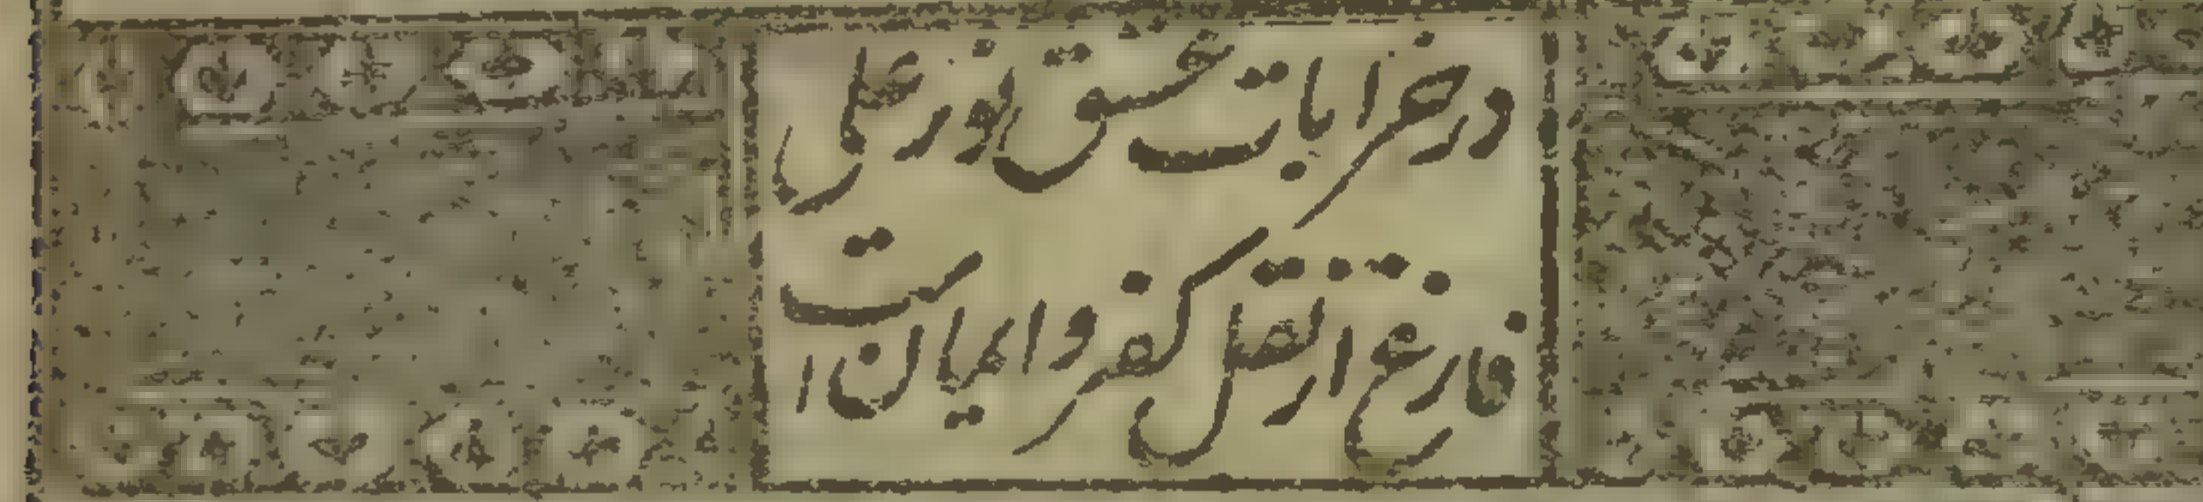 در خرابات عشق نور علی
فارغ از نقل کفر و ایمان است